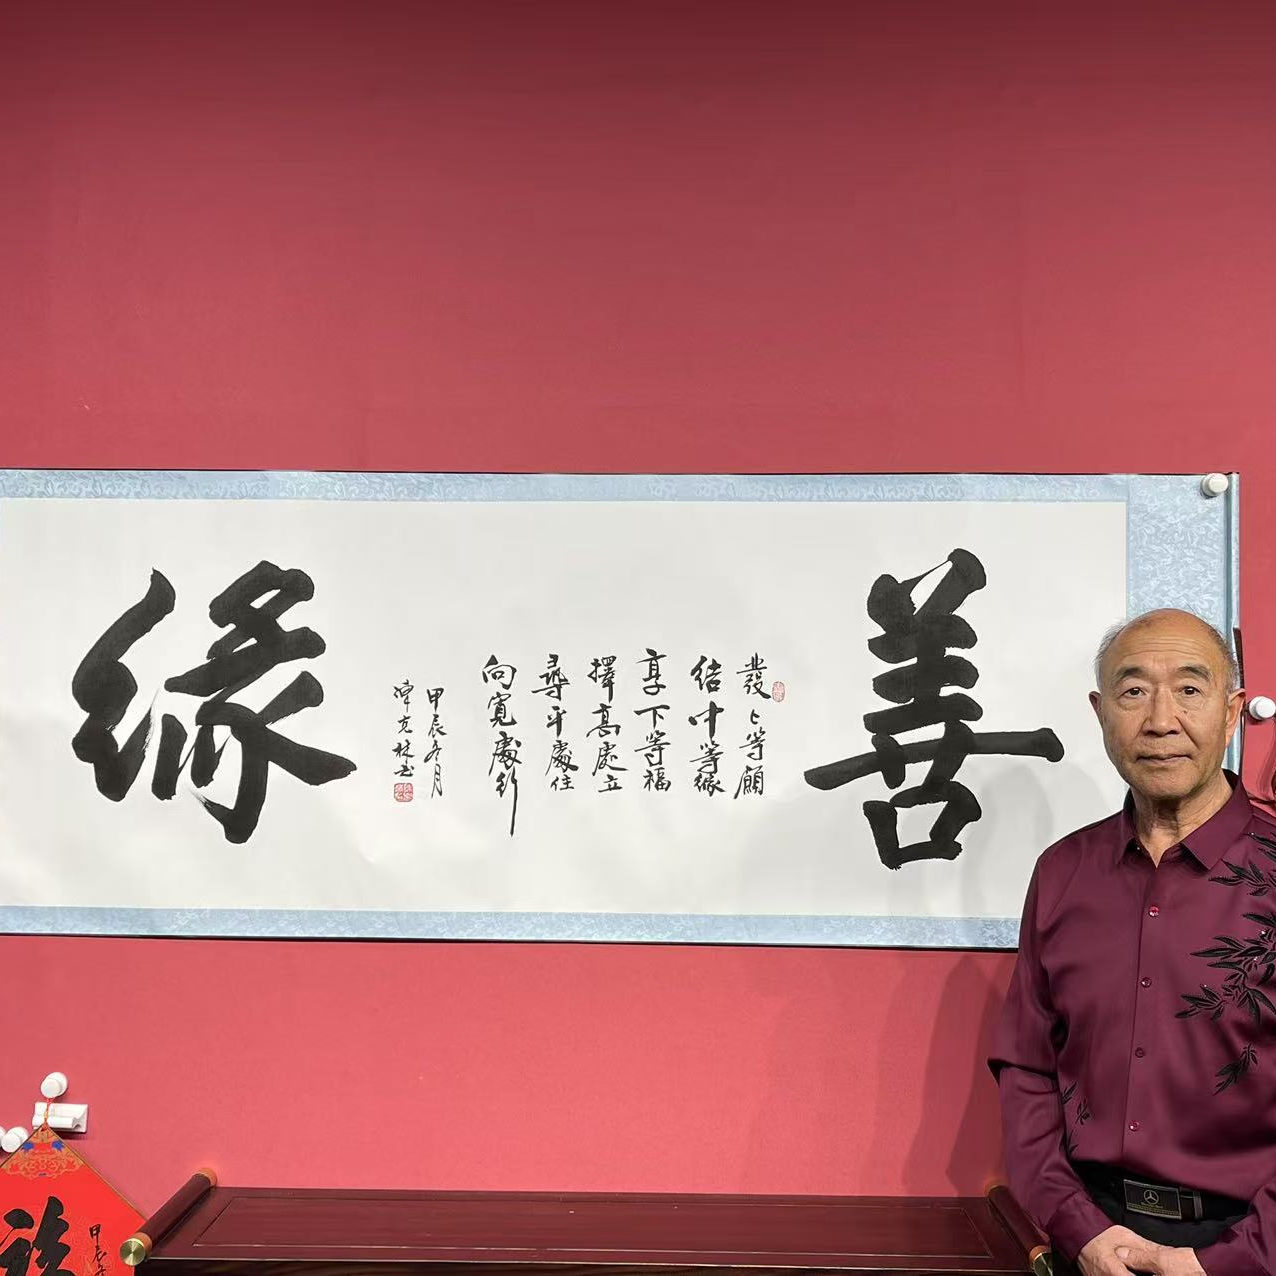 善
發上等願
結中等緣
享下等福
擇高處立
尋平處住
向寬處行
甲辰冬月
克林书
缘
甲辰